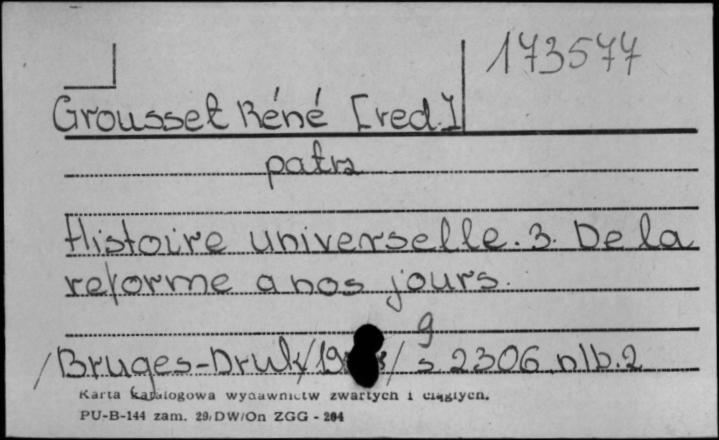 173577
Grousset Réné [red.]
patrz
Histoire universelle. 3. De la
reforme a nos jours.
9
/Bruges-Druk/19 / s 2306 nlb. 2
Karta katalogowa wydawnictw zwartych i ciągłych.
PU-B-144 zam. 29/DW/On ZGG - 264